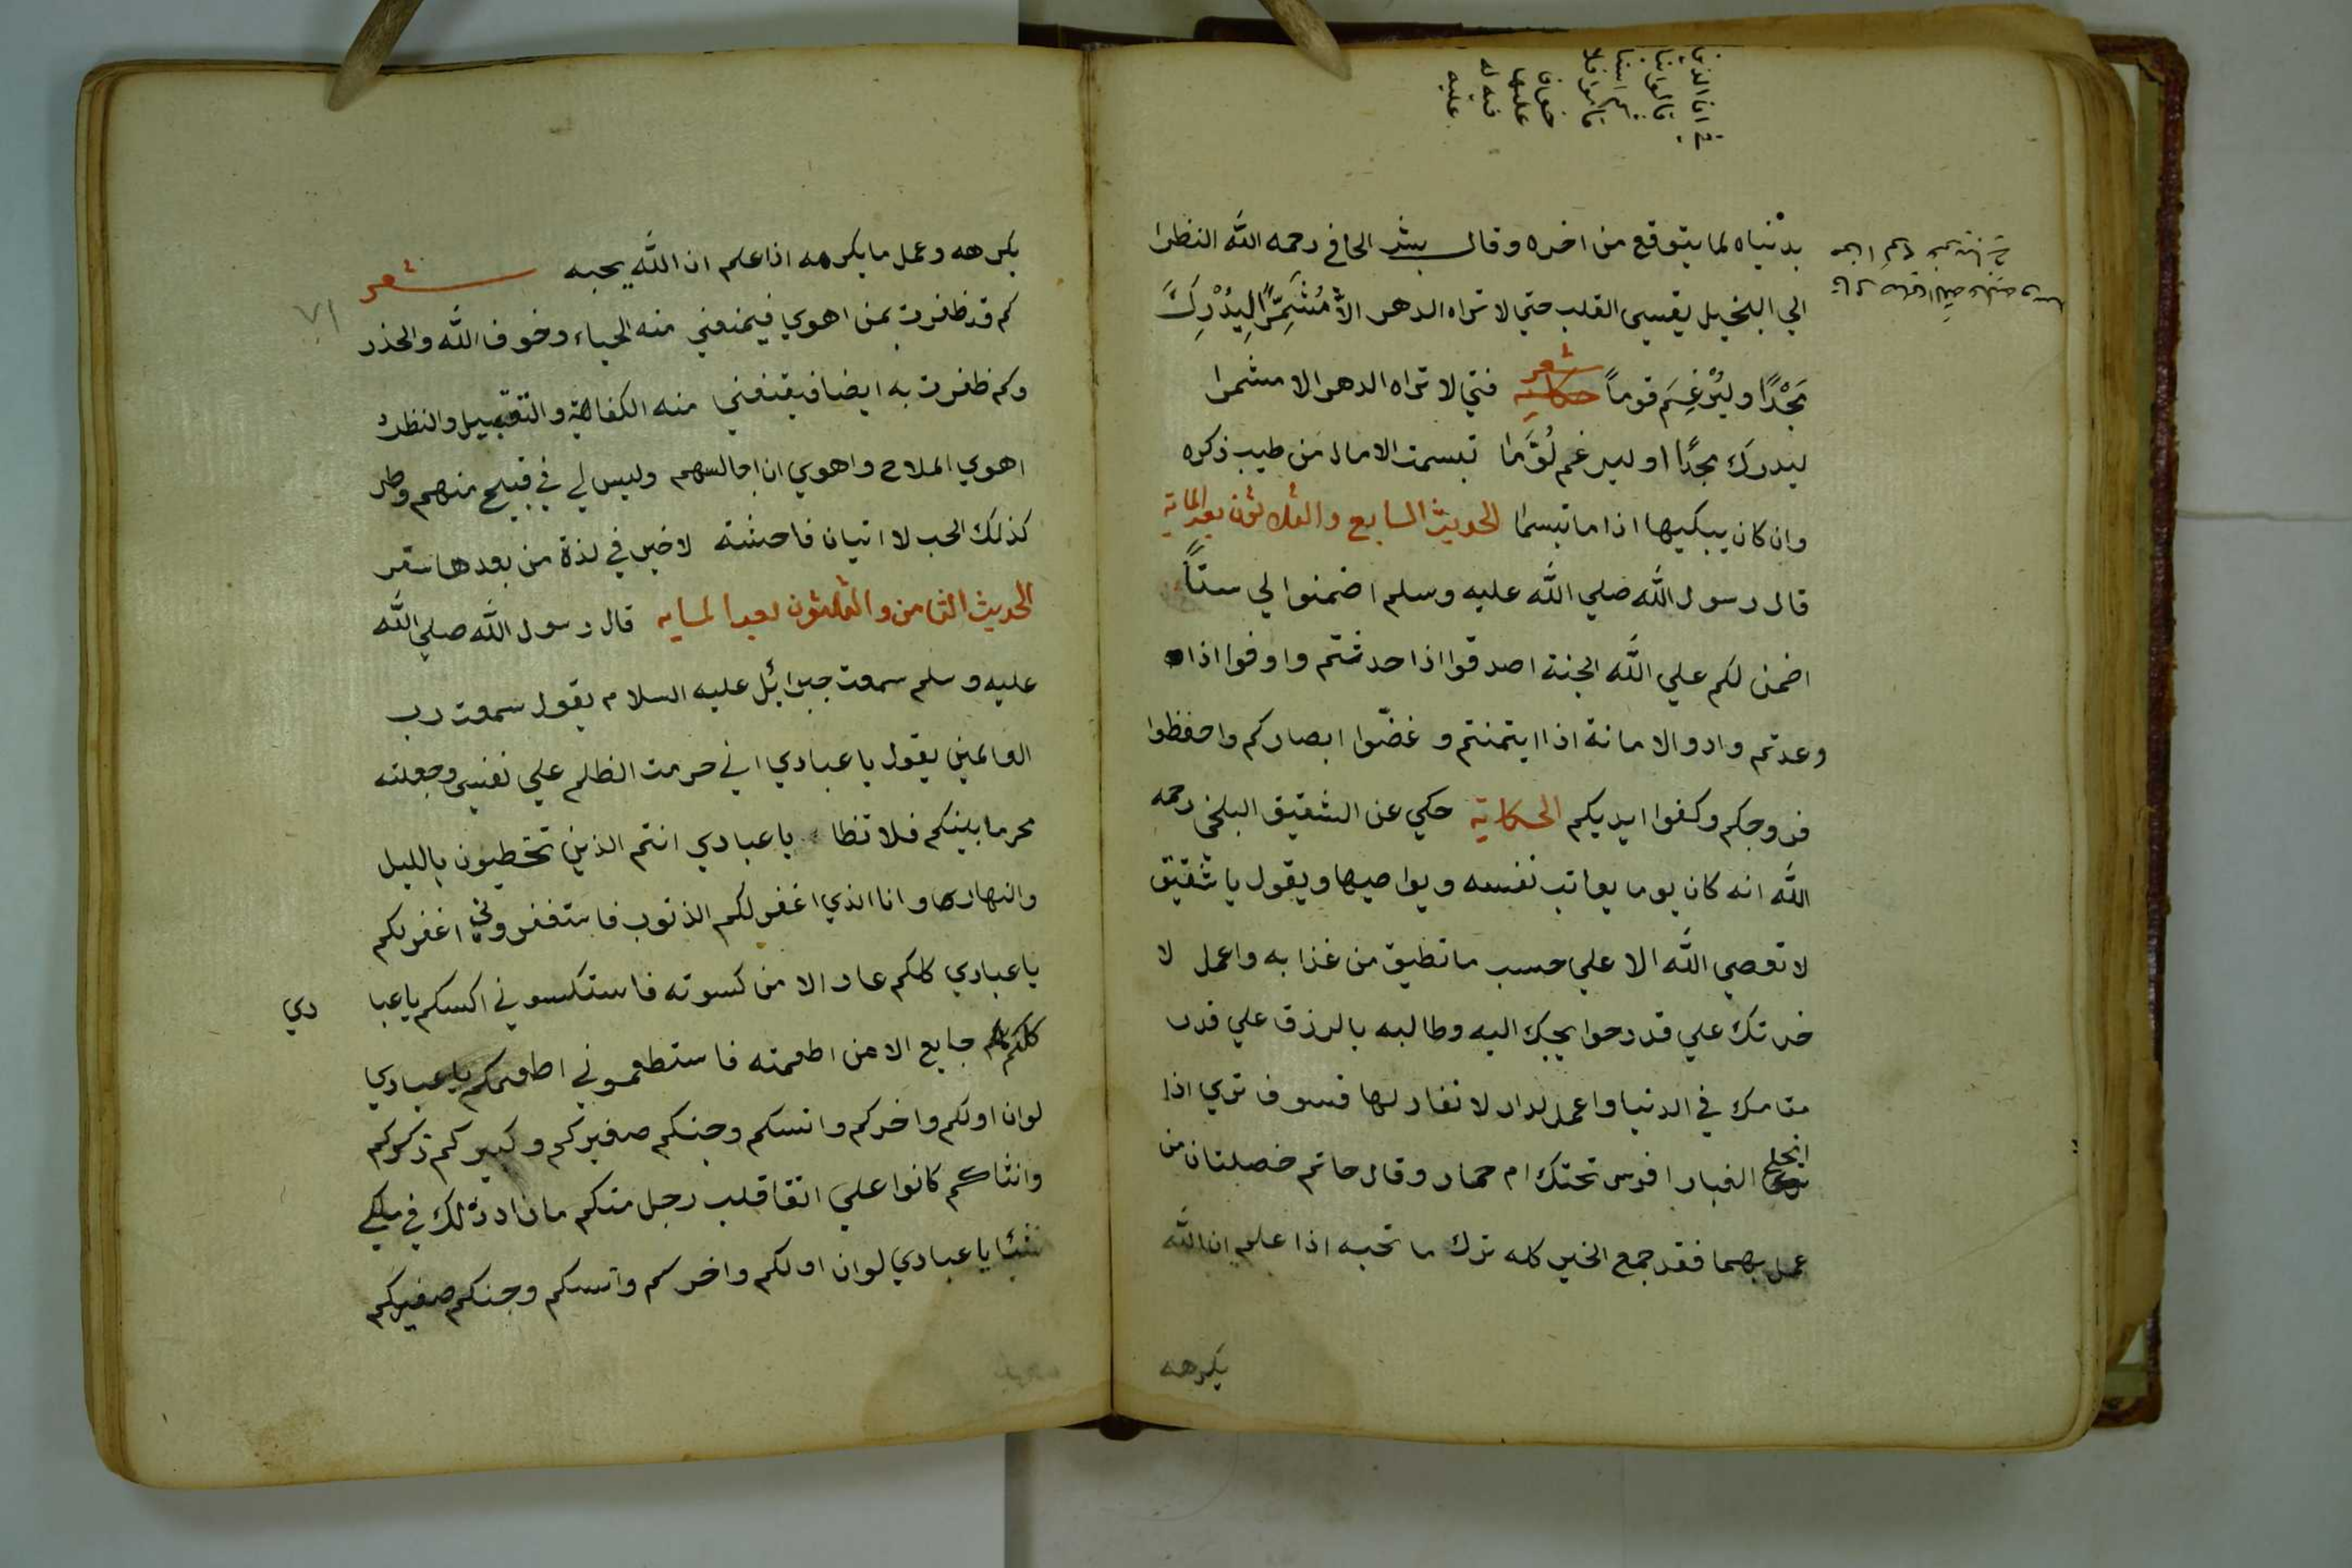 بدنياه لما يتوقع من اخره وقال بشر الحافي رحمه الله النظرا
الي البخيل يقسي القلب حتي لا تراه الدهر الا مُشَمِّرًا لِيُدْرِكَ
مَجْدًا وليُرْغِمَ قوماً حكاية شعر فتي لا تراه الدهر الا مشمرا
ليدرك مجدًا او ليرغم لُوَّما تبسمت الامال من طيب ذكره
وان كان يبكيها اذا ما تبسما الحديث السابع والثلاثون بعد الماية
قال رسول الله صلي الله عليه وسلم اضمنوا لي ستاً
اضمن لكم علي الله الجنة اصدقوا اذا حدثتم واوفوا اذا
وعدتم وادوا الامانة اذا ايتمنتم و غضّوا ابصاركم واحفظوا
فروجكم وكفوا ايديكم الحكاية حكي عن الشقيق البلخي رحمه
الله انه كان يوما يعاتب نفسه ويواصيها ويقول يا شقيق
لا تعصي الله الا علي حسب ما تطيق من عذابه واعمل لا
خرتك علي قدر حوايجك اليه وطالبه بالرزق علي قدر
مقامك في الدنيا واعمل لدار لا نفاد لها فسوف تري اذا
انجلي الغبار افرس تحتك ام حمار وقال حاتم خصلتان من
عمل بهما فقد جمع الخير كله ترك ما تحبه اذا علم ان الله
يكرهه
يكرهه وعمل ما يكرهه اذا علم ان الله يحبه شعر
٧١
كم قد ظفرت بمن اهوي فيمنعني منه الحياء وخوف الله والحذر
وكم ظفرت به ايضا فيقنعني منه الفكاهة والتقبيل والنظر
اهوي الملاح واهوي ان اجالسهم وليس لي في قبيح منهم وطر
كذلك الحب لا اتيان فاحشة لا خير في لذة من بعدها سقر
الحديث الثامن والثلثون بعد الماية قال رسول الله صلي الله
عليه وسلم سمعت جبرائل عليه السلام يقول سمعت رب
العالمين يقول يا عبادي اني حرمت الظلم علي نفسي وجعلته
محرما بينكم فلا تظا يا عبادي انتم الذين تخطيون بالليل
والنهار وانا الذي اغفر لكم الذنوب فاستغفروني اغفر لكم
يا عبادي كلكم عار الا من كسوته فاستكسوني اكسكم يا عبا دي
كلكم جايع الا من اطعمته فاستطعموني اطعمكم يا عبادي
لو ان اولكم واخركم وانسكم وجنكم صغيركم وكبيركم ذكركم
وانثاكم كانوا علي اتقا قلب رجل منكم ما زاد ذلك في ملكي
شيئا يا عبادي لو ان اولكم واخركم وانسكم وجنكم صغيركم